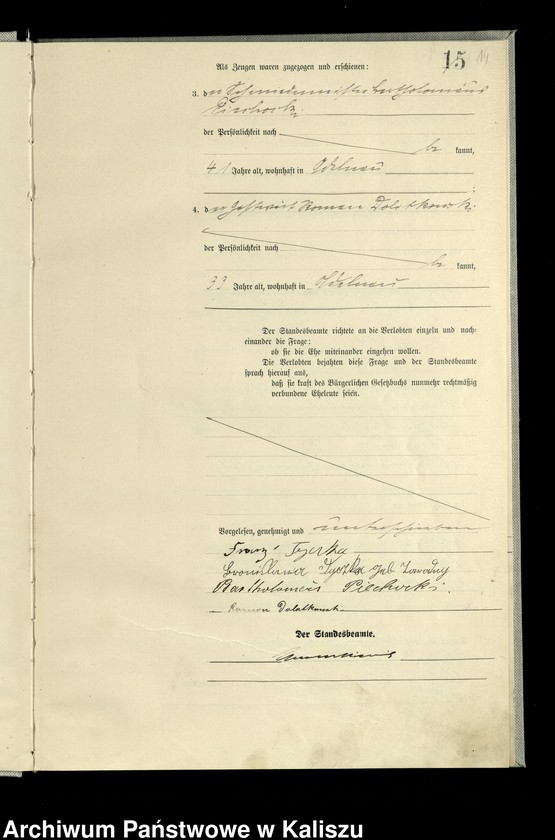 15 14
Als Zeugen waren zugezogen und erschienen:
3. der Schmiedemeister Bartholomäus
Piechocki
der Persönlichkeit nach
be kannt,
41 Jahre alt, wohnhaft in Adelnau
;
4. der Gastwirt Roman Dolatkowski
der Persönlichkeit nach
be kannt,
33 Jahre alt, wohnhaft in Adelnau
Der Standesbeamte richtete an die Verlobten einzeln und nach-
einander die Frage:
ob sie die Ehe miteinander eingehen wollen.
Die Verlobten bejahten diese Frage und der Standesbeamte
sprach hierauf aus,
daß sie kraft des Bürgerlichen Gesetzbuchs nunmehr rechtmäßig
verbundene Eheleute seien.
Vorgelesen, genehmigt und unterschrieben
Franz
Bronislawa geb Zawodny
Bartholomeus Piechocki.
Roman Dolatkowski
Der Standesbeamte.
Archiwum Państwowe w Kaliszu